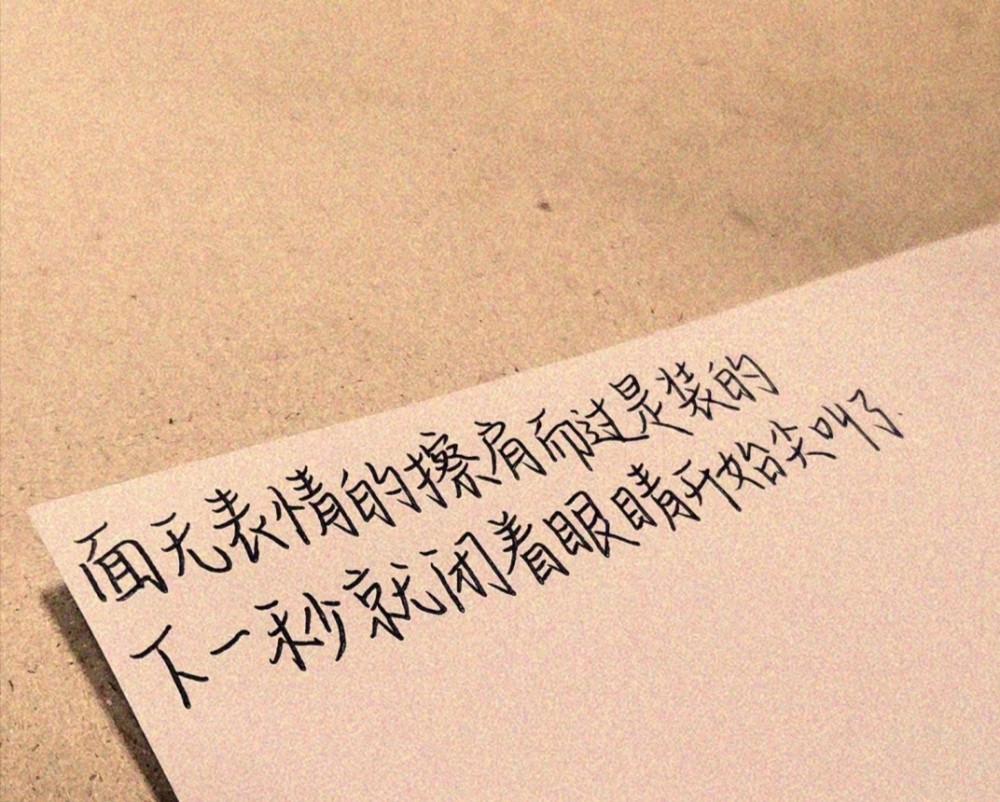 面无表情的擦肩而过是装的
下一秒就闭着眼睛开始尖叫了